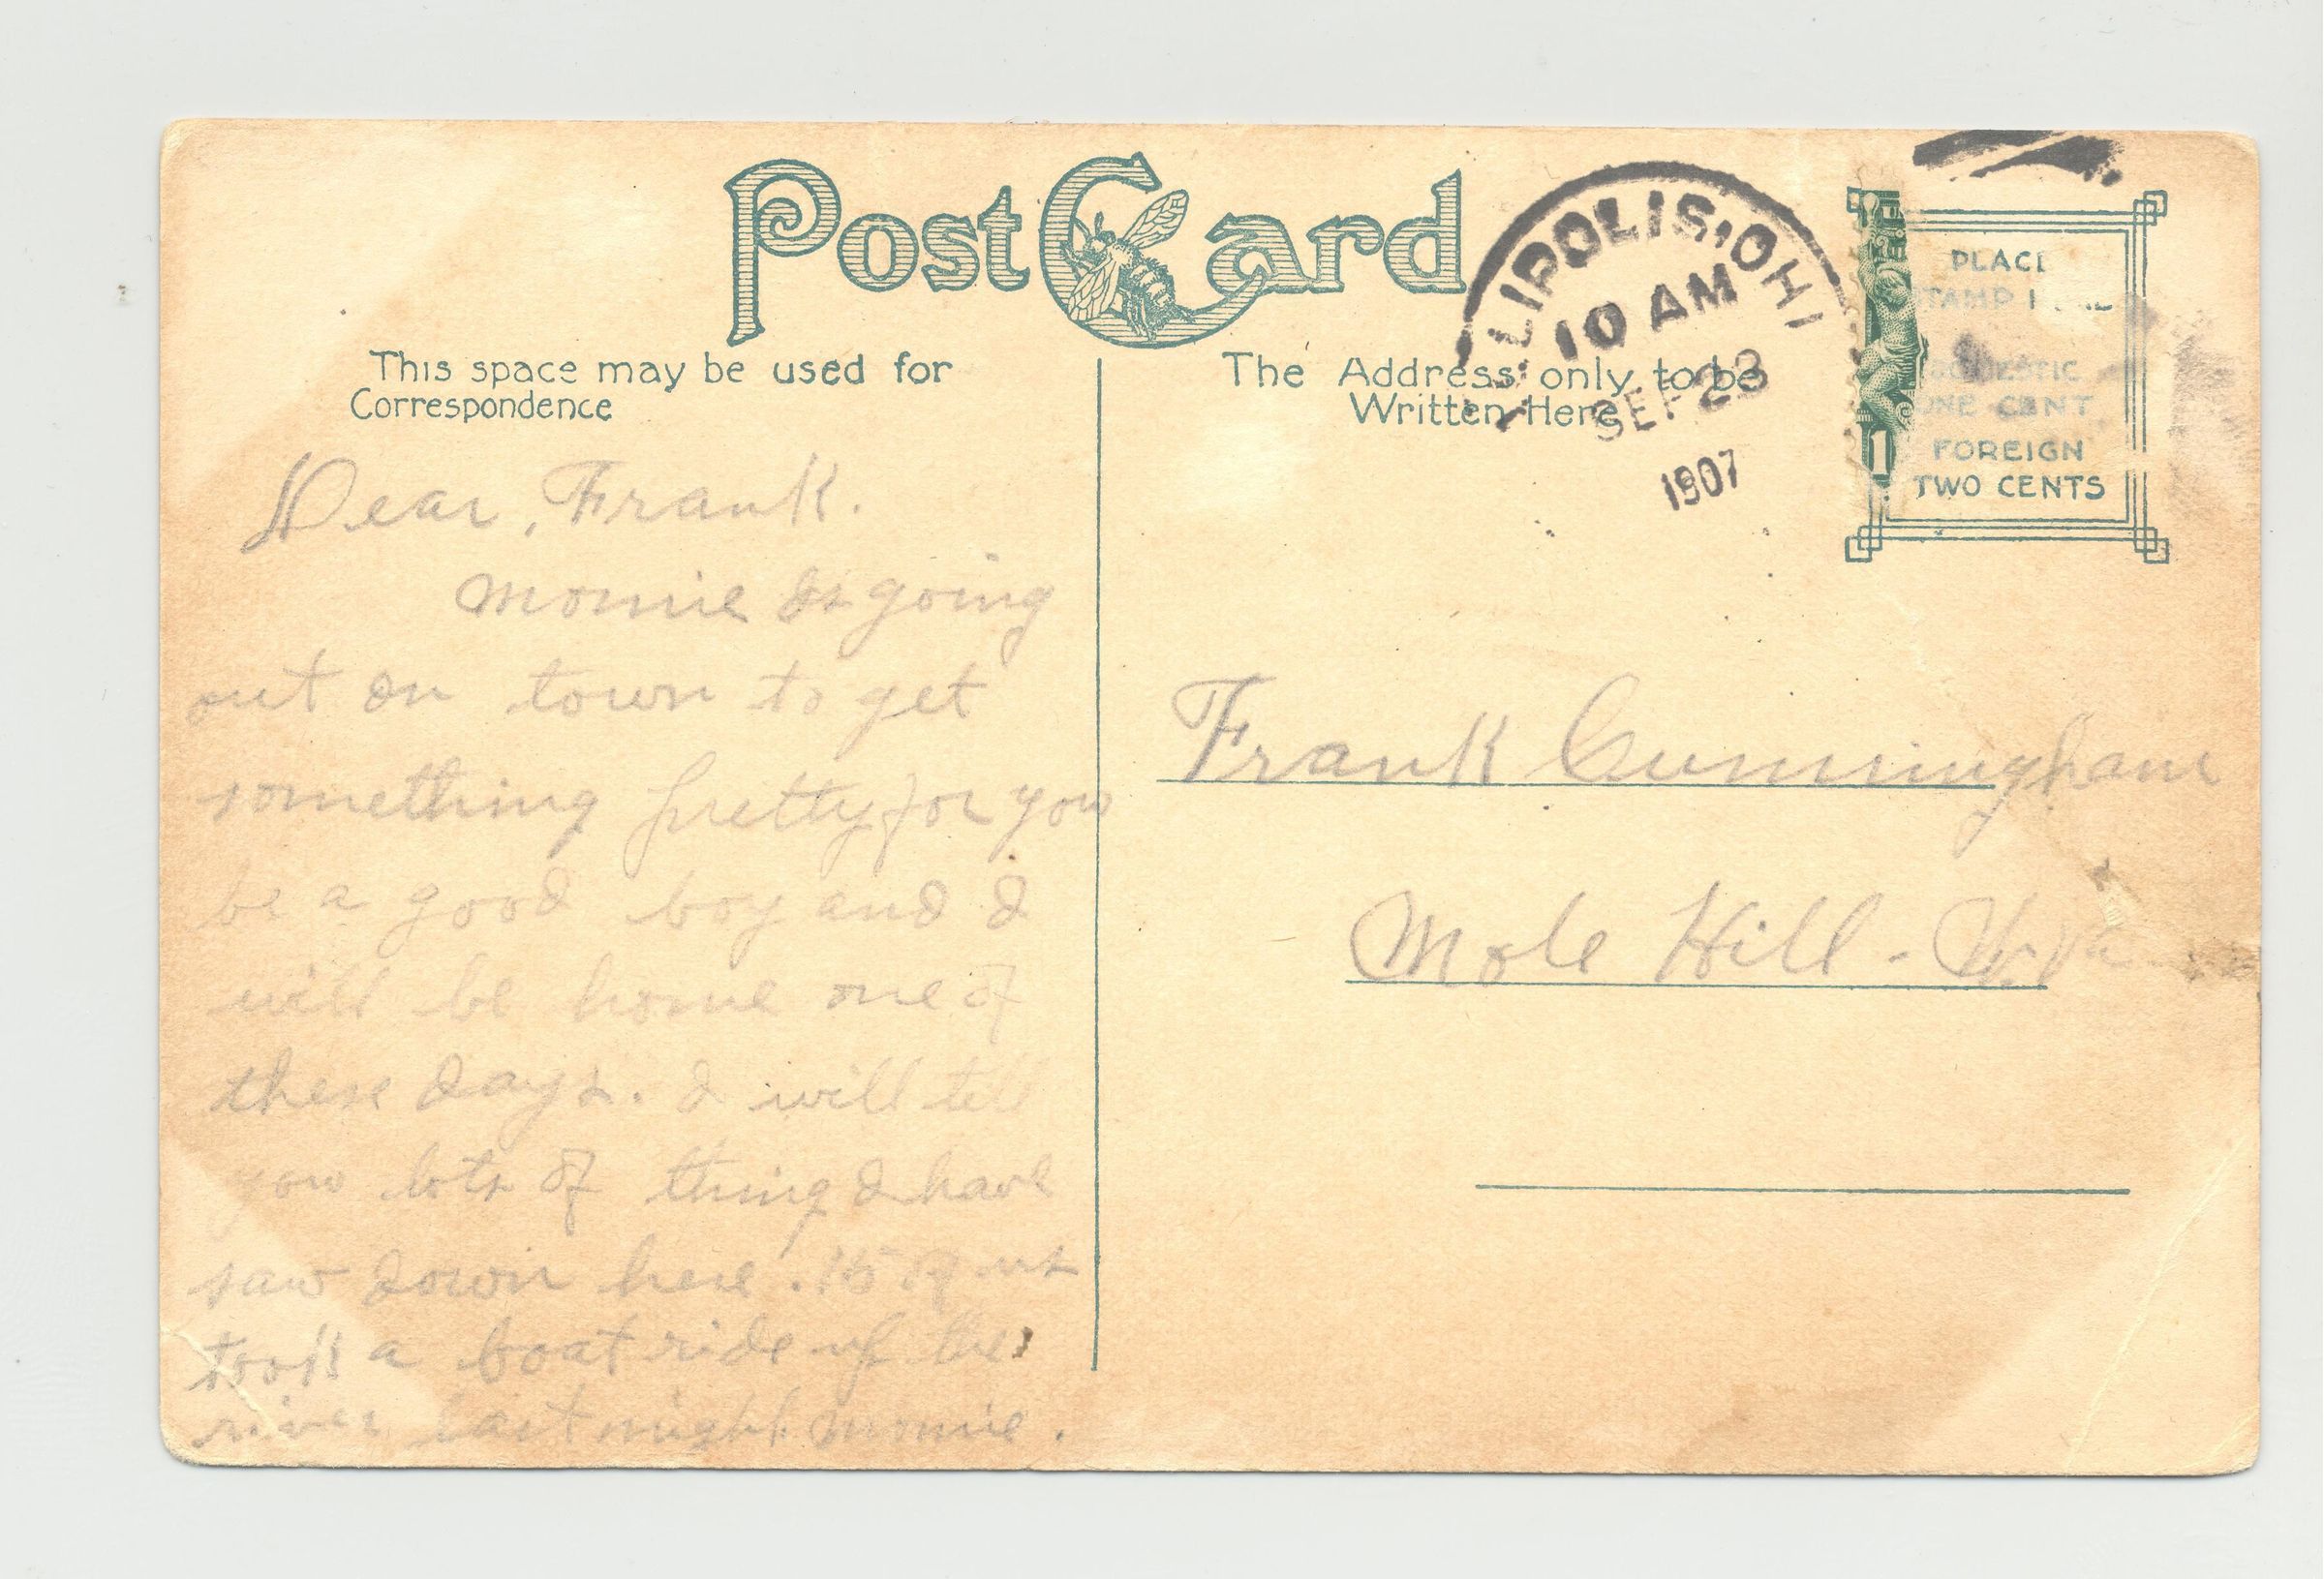 Post Card
This space may be used for
Correspondence
The Address only to be
Written Here
LIPOLIS, OHI
10 AM
SEP 23
1907
PLACE
STAMP
DOMESTIC
ONE CENT
FOREIGN
TWO CENTS
1
Dear, Frank.
Momie is going
out on town to get
something pretty for you
be a good boy and I
will be home one of
these days. I will tell
you lots of thing I have
saw down here. 15
took a boat ride up the
river last night Momie.
Frank Cunningham
Mole Hill - W. Va